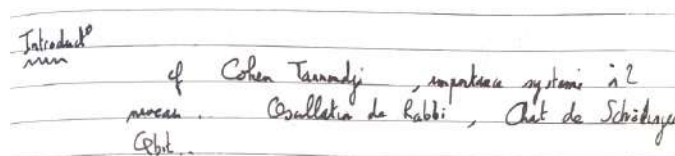 Introduct°
cf Cohen Tannoudji, importance système à 2
niveau.. Oscillation de Rabbi, Chat de Schrödinger
Qbit..